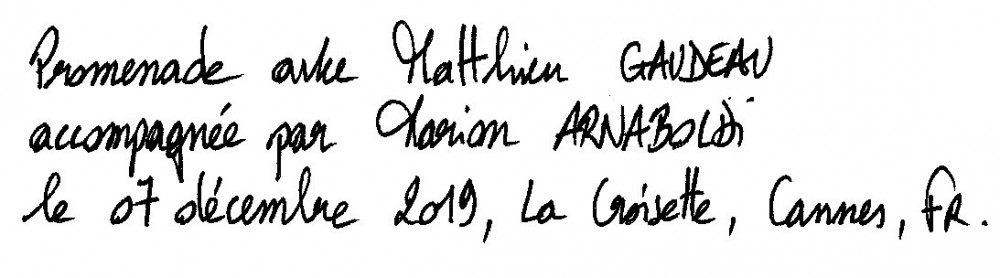 Promenade avec Matthieu GAUDEAU
accompagnée par Marion ARNABOLDI
le 07 décembre 2019, La Croisette, Cannes, FR.